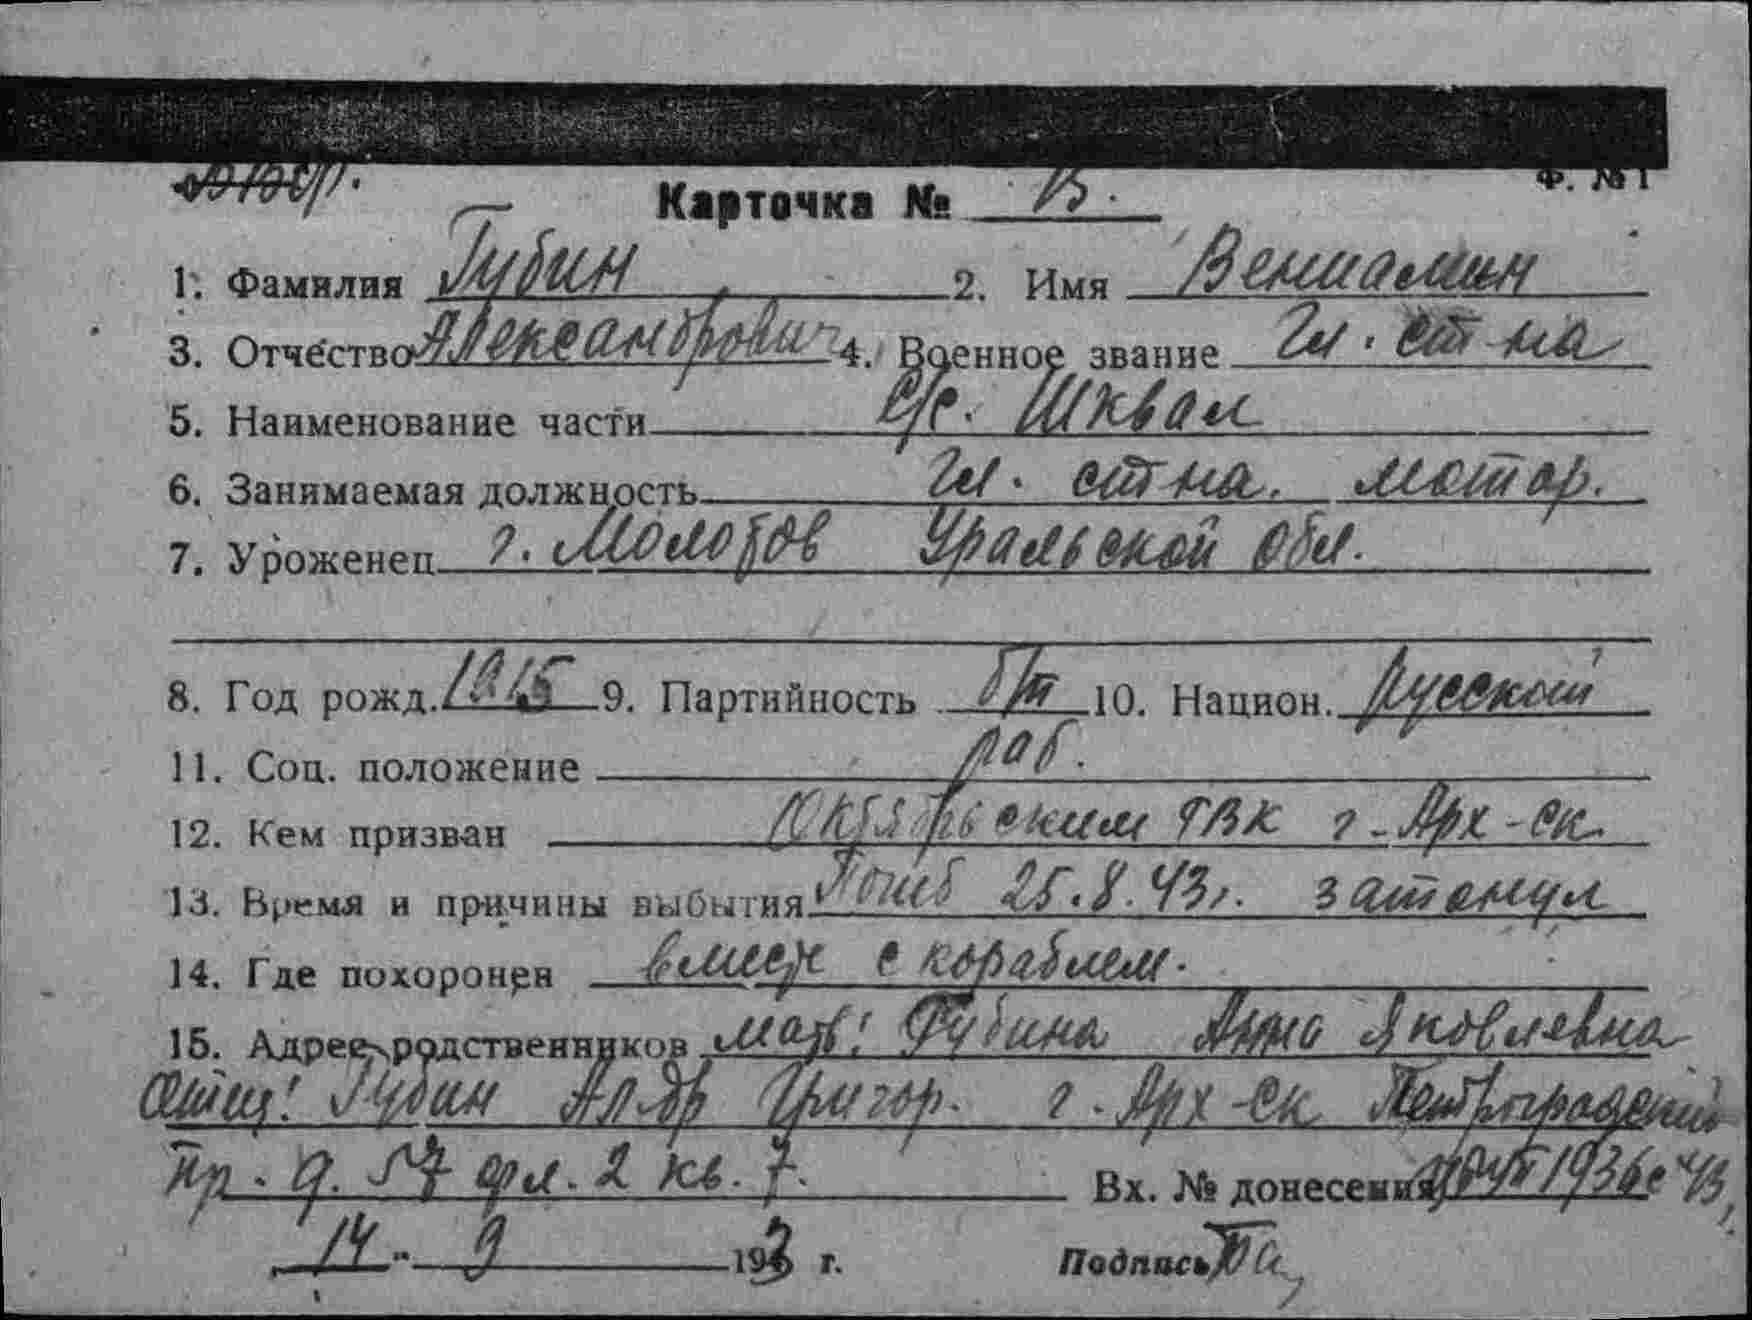 Ф. № 1
Карточка № В.
1. Фамилия Губин 2. Имя Вениамин
3. Отчество Александрович 4. Военное звание Гл. ст-на
5. Наименование части с/с. Шквал
6. Занимаемая должность Гл. ст-на. мотор.
7. Уроженец г. Молотов Уральской обл.
8. Год рожд. 1915 9. Партийность б/п 10. Национ. Русский
11. Соц. положение раб.
12. Кем призван Октябрьским ГВК г. Арх-ск.
13. Время и причины выбытия Погиб 25.8.43г. затонул
14. Где похоронен вместе с кораблем.
15. Адрес родственников мать: Губина Анна Яковлевна
Отец: Губин Ал-др Григор. г. Арх-ск Петроградский
пр. д. 57 фл. 2 кв. 7. Вх. № донесения 1936с 43
14 " 9 1943 г. Подпись